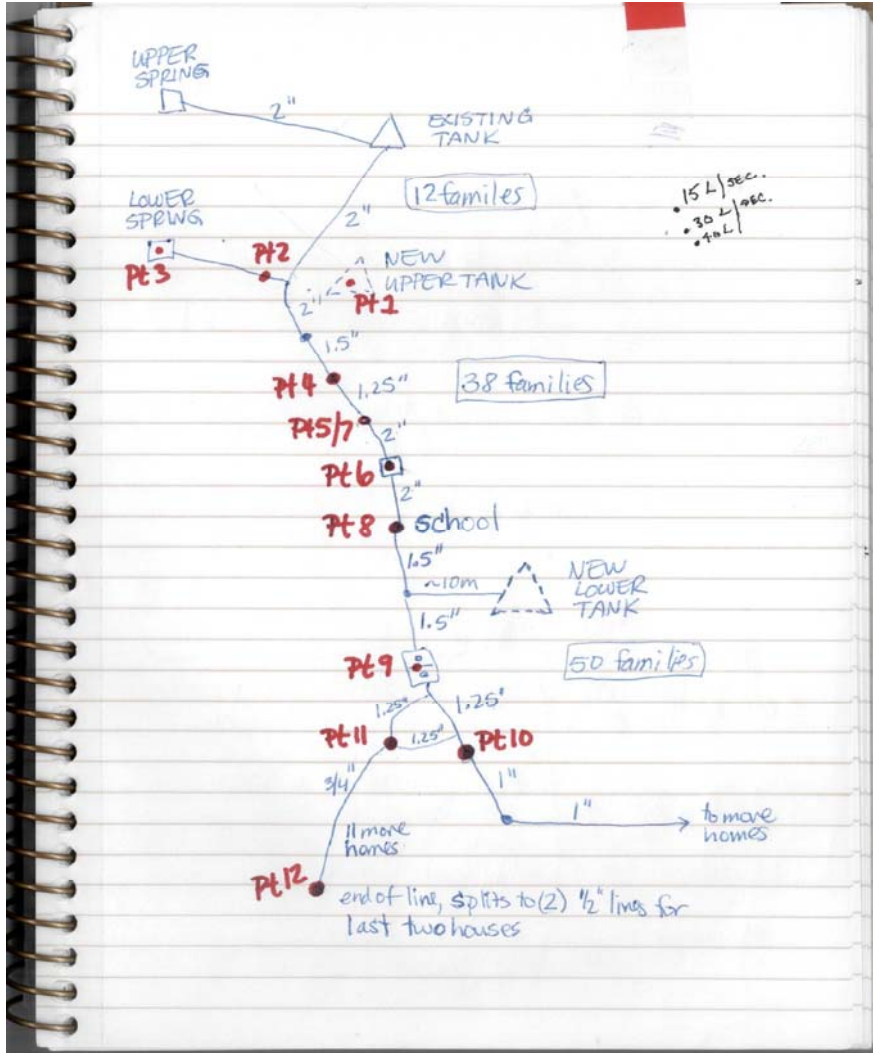 UPPER
SPRING
2"
EXISTING
TANK
12 familes
.15 L/SEC.
.30 L/SEC.
.40 L
LOWER
SPRING
2"
Pt 2
NEW
UPPER TANK
Pt 3
2"
Pt 1
1.5"
Pt 4
1.25"
38 families
Pt 5/7
2"
Pt 6
2"
Pt 8
school
1.5"
~10m
NEW
LOWER
TANK
1.5"
Pt 9
50 families
1.25"
1.25"
Pt 11
1.25"
Pt 10
3/4"
1"
1"
to more
homes
11 more
homes
Pt 12
end of line, splits to (2) 1/2" lines for
last two houses